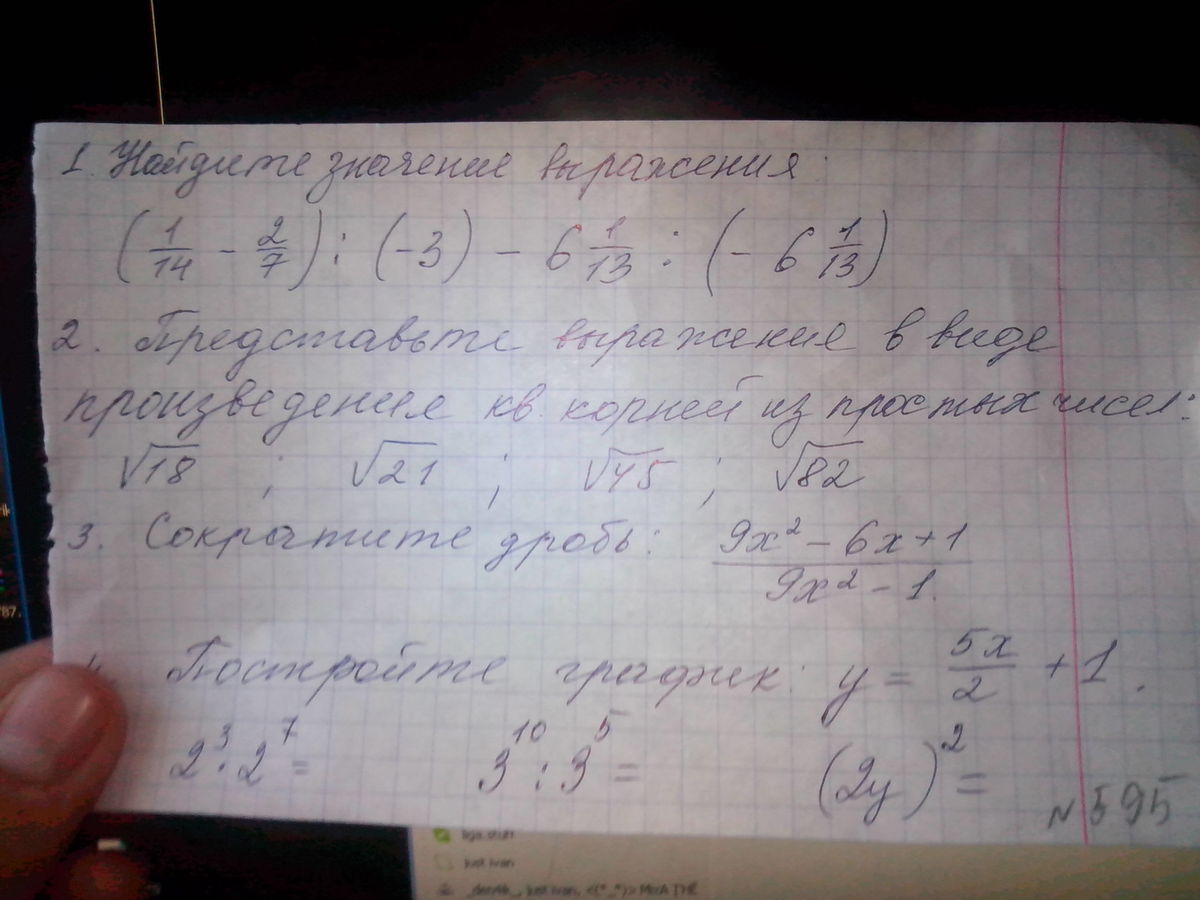 1. Найдите значение выражения:
(1/14 - 2/7) : (-3) - 6 1/13 : (-6 1/13)
2. Представьте выражение в виде
произведения кв. корней из простых чисел:
√18 ; √21 ; √45 ; √82
3. Сократите дробь: (9x² - 6x + 1)/(9x² - 1.)
Постройте график: y = 5x/2 + 1.
2³ · 2⁷ = 3¹⁰ : 3⁵ = (2y)² =
№595
just ivan